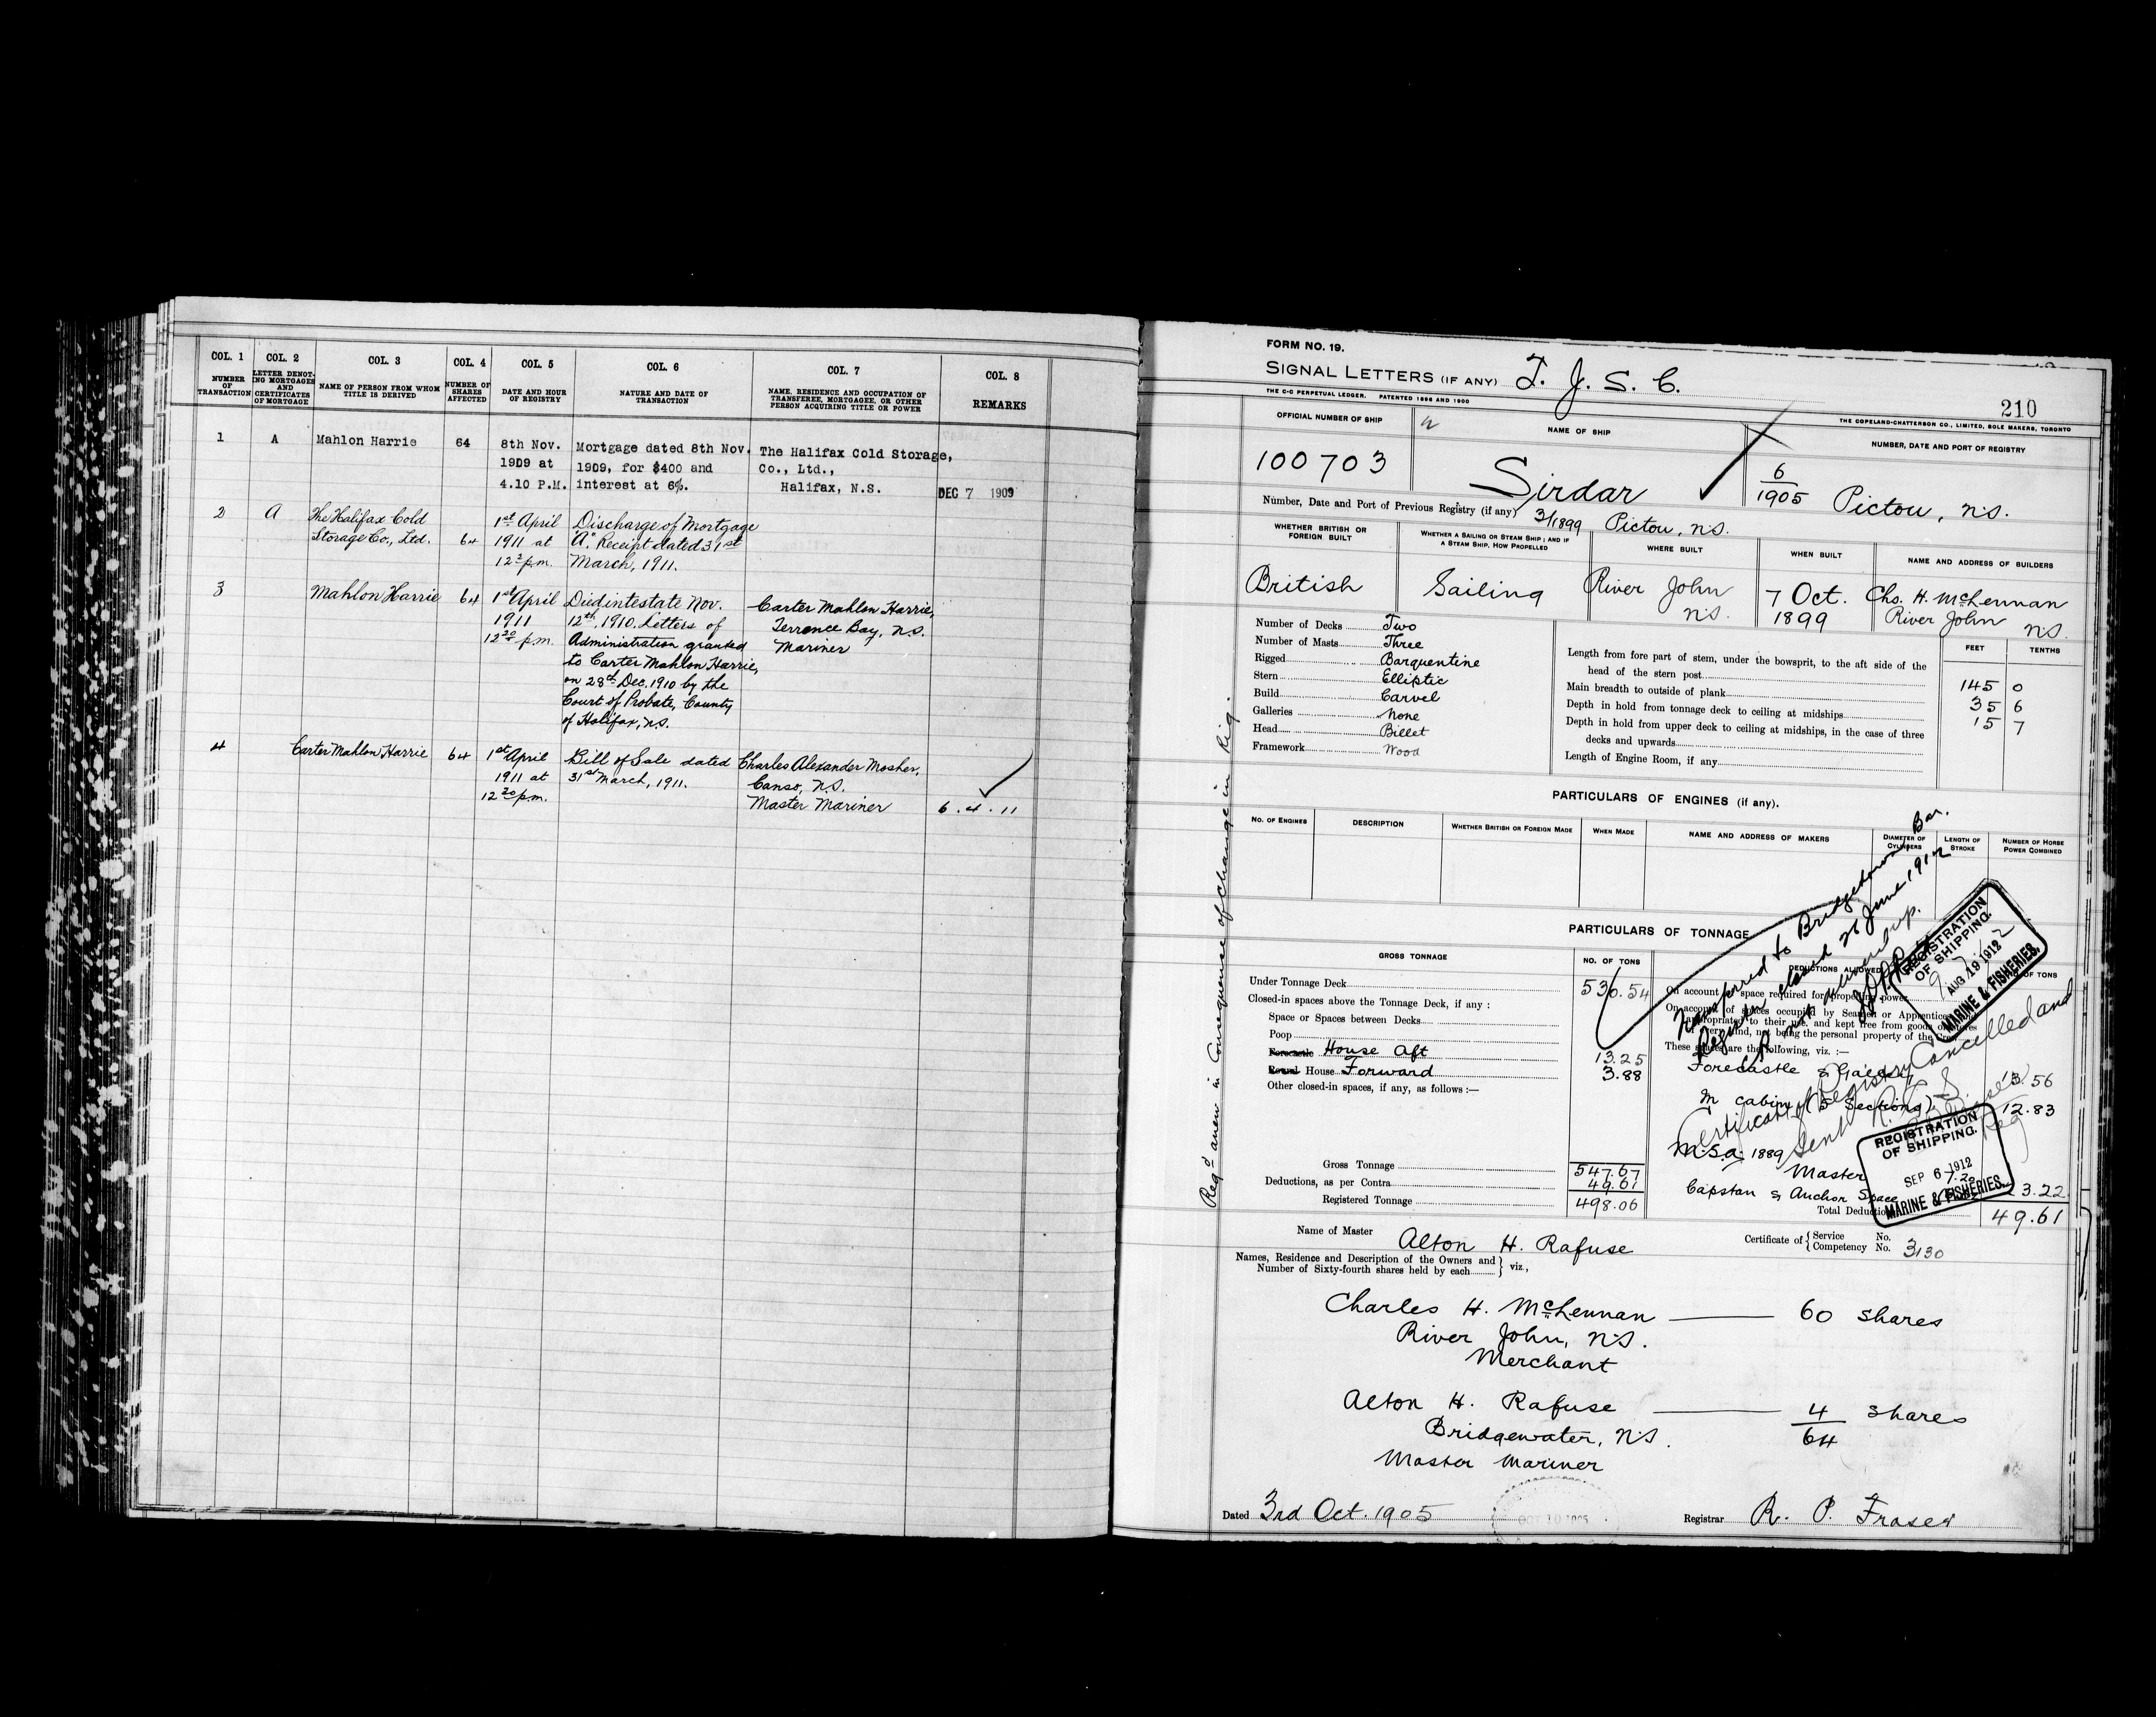 COL. 1
NUMBER
OF
TRANSACTION
COL. 2
LETTER DENOT-
ING MORTGAGES
AND
CERTIFICATES
OF MORTGAGE
COL. 3
NAME OF PERSON FROM WHOM
TITLE IS DERIVED
COL. 4
NUMBER OF
SHARES
AFFECTED
COL. 5
DATE AND HOUR
OF REGISTRY
COL. 6
NATURE AND DATE OF
TRANSACTION
COL. 7
NAME, RESIDENCE AND OCCUPATION OF
TRANSFEREE, MORTGAGEE, OR OTHER
PERSON ACQUIRING TITLE OR POWER
COL. 8
REMARKS
1
A
Mahlon Harrie
64
8th Nov.
1909 at
4.10 P.M.
Mortgage dated 8th Nov.
1909, for $400 and
interest at 6%.
The Halifax Cold Storage,
Co., Ltd.,
Halifax, N.S.
DEC 7 1909
2
A
The Halifax Cold
Storage Co., Ltd.
64
1st April
1911 at
12 pm.
Discharge of Mortgage
"A". Receipt dated 31st
March, 1911.
3
Mahlon Harrie
64
1st April
1911
12 20 pm.
Died intestate Nov.
12th, 1910. Letters of
Administration granted
to Carter Mahlon Harrie,
on 28th Dec. 1910 by the
Court of Probate, County
of Halifax, N.S.
Carter Mahlon Harrie,
Terrence Bay, N.S.
Mariner
4
Carter Mahlon Harrie
64
1st April
1911 at
12 20 pm.
Bill of Sale dated
31st March, 1911.
Charles Alexander Mosher,
Canso, N.S.
Master Mariner
6.4.11
FORM NO. 19.
SIGNAL LETTERS (IF ANY) T. J. S. C.
THE C-C PERPETUAL LEDGER. PATENTED 1898 AND 1900
210
THE COPELAND-CHATTERSON CO., LIMITED, SOLE MAKERS, TORONTO
OFFICIAL NUMBER OF SHIP
100703
NAME OF SHIP
Sirdar
NUMBER, DATE AND PORT OF REGISTRY
6
1905 Pictou, N.S.
Number, Date and Port of Previous Registry (if any) 3/1899 Pictou, N.S.
WHETHER BRITISH OR
FOREIGN BUILT
British
WHETHER A SAILING OR STEAM SHIP; AND IF
A STEAM SHIP, HOW PROPELLED
Sailing
WHERE BUILT
River John
N.S.
WHEN BUILT
7 Oct.
1899
NAME AND ADDRESS OF BUILDERS
Chs. H. McLennan
River John
N.S.
Number of Decks Two
Number of Masts Three
Rigged Barquentine
Stern Elliptic
Build Carvel
Galleries None
Head Billet
Framework Wood
FEET
TENTHS
Length from fore part of stem, under the bowsprit, to the aft side of the
head of the stern post 145 0
Main breadth to outside of plank 35 6
Depth in hold from tonnage deck to ceiling at midships 15 7
Depth in hold from upper deck to ceiling at midships, in the case of three
decks and upwards
Length of Engine Room, if any
PARTICULARS OF ENGINES (if any).
NO. OF ENGINES
DESCRIPTION
WHETHER BRITISH OR FOREIGN MADE
WHEN MADE
NAME AND ADDRESS OF MAKERS
DIAMETER OF
CYLINDERS
LENGTH OF
STROKE
NUMBER OF HORSE
POWER COMBINED
PARTICULARS OF TONNAGE
GROSS TONNAGE
NO. OF TONS
Under Tonnage Deck 530.54
Closed-in spaces above the Tonnage Deck, if any :
Space or Spaces between Decks
Poop
Forecastle House Aft 13.25
Round House Forward 3.88
Other closed-in spaces, if any, as follows :—
Gross Tonnage 547.67
Deductions, as per Contra 49.61
Registered Tonnage 498.06
DEDUCTIONS ALLOWED
OF TONS
On account of space required for propelling power
On account of spaces occupied by Seamen or Apprentices
appropriated to their use, and kept free from goods
not being the personal property of the
These spaces are the following, viz. :—
Forecastle & Galley 13.56
In cabin (5 Sections) 12.83
M.S.A. 1889
Master
Capstan & Anchor Space 3.22
Total Deductions 49.61
Transferred to Bridgetown Bar.
Register closed 26 June 1912
REGISTRATION
OF SHIPPING.
AUG 19 1912
MARINE & FISHERIES.
Certificate of Registry Cancelled and
Sent
REGISTRATION
OF SHIPPING.
SEP 6 1912
MARINE & FISHERIES.
Regd anew in Consequence of change in Rig.
Name of Master Alton H. Rafuse
Certificate of Service No.
Competency No. 3130
Names, Residence and Description of the Owners and
Number of Sixty-fourth shares held by each viz.,
Charles H. McLennan — 60 shares
River John, N.S.
Merchant
Alton H. Rafuse — 4 shares
64
Bridgewater, N.S.
Master Mariner
Dated 3rd Oct. 1905
Registrar R. P. Fraser